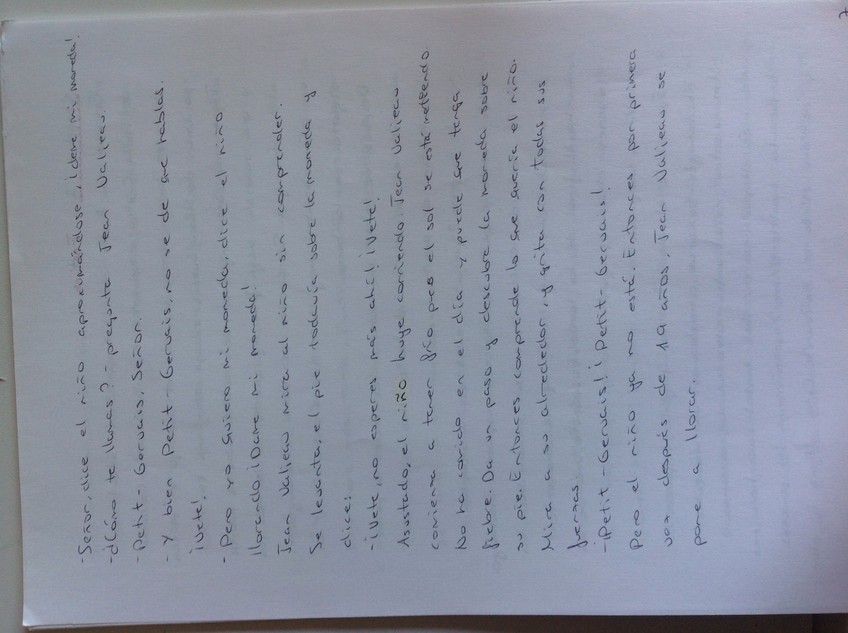 -Señor, dice el niño aproximándose, ¡deme mi moneda!
-¿Cómo te llamas? - pregunta Jean Valjean.
-Petit-Gervais, Señor.
- Y bien Petit-Gervais, no se de que hablas.
¡Vete!
- Pero yo quiero mi moneda, dice el niño
llorando. ¡Dame mi moneda!
Jean Valjean mira al niño sin comprender.
Se levanta, el pie todavía sobre la moneda y
dice:
-¡Vete, no esperes más ahí! ¡Vete!
Asustado, el niño huye corriendo. Jean Valjean
comienza a tener frío pues el sol se está metiendo.
No ha comido en el día y puede que tenga
fiebre. Da un paso y descubre la moneda sobre
su pie. Entonces comprende lo que quería el niño.
Mira a su alrededor, y grita con todas sus
fuerzas.
-¡Petit-Gervais! ¡Petit-Gervais!
Pero el niño ya no está. Entonces por primera
vez después de 19 años, Jean Valjean se
pone a llorar.